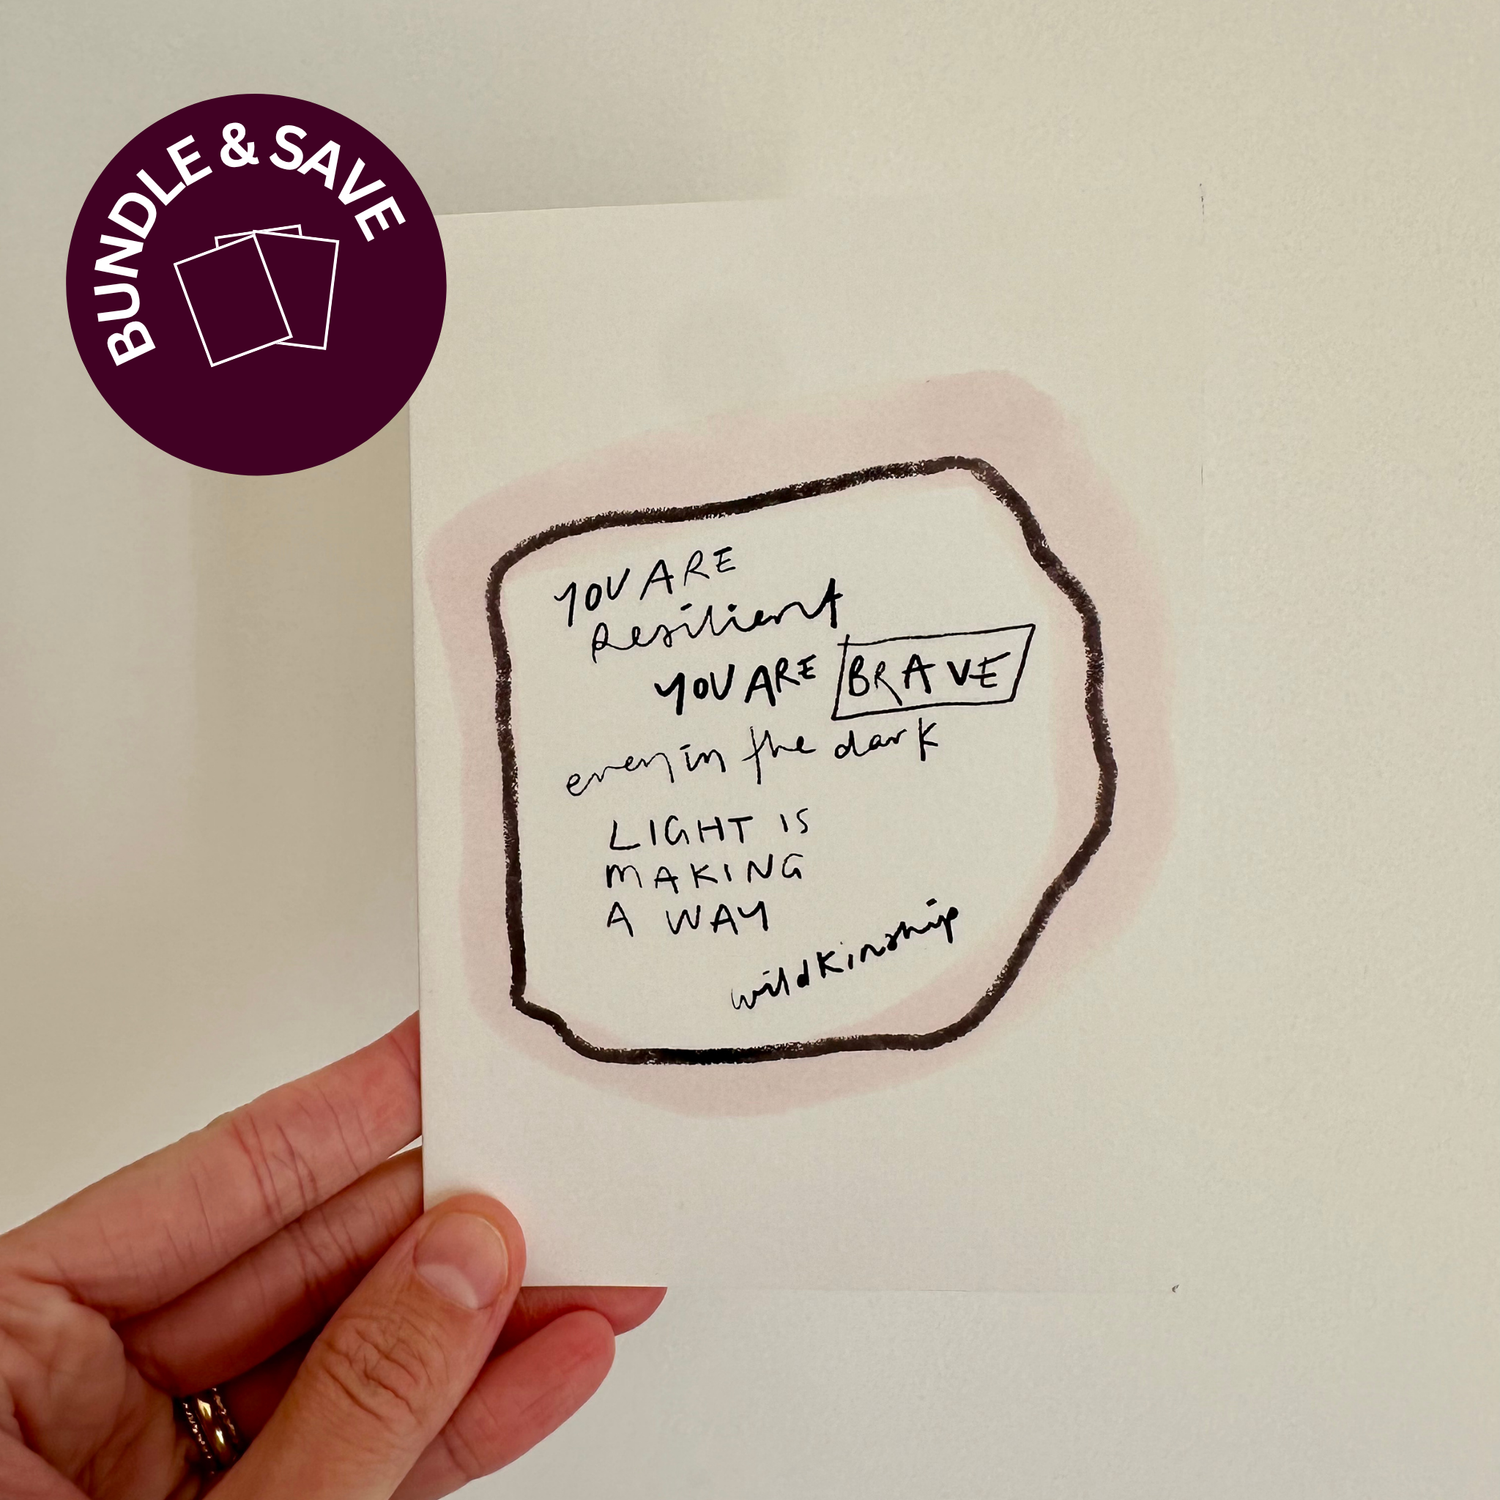 BUNDLE & SAVE
YOU ARE
Resilient
YOU ARE BRAVE
even in the dark
LIGHT IS
MAKING
A WAY
wildkinship